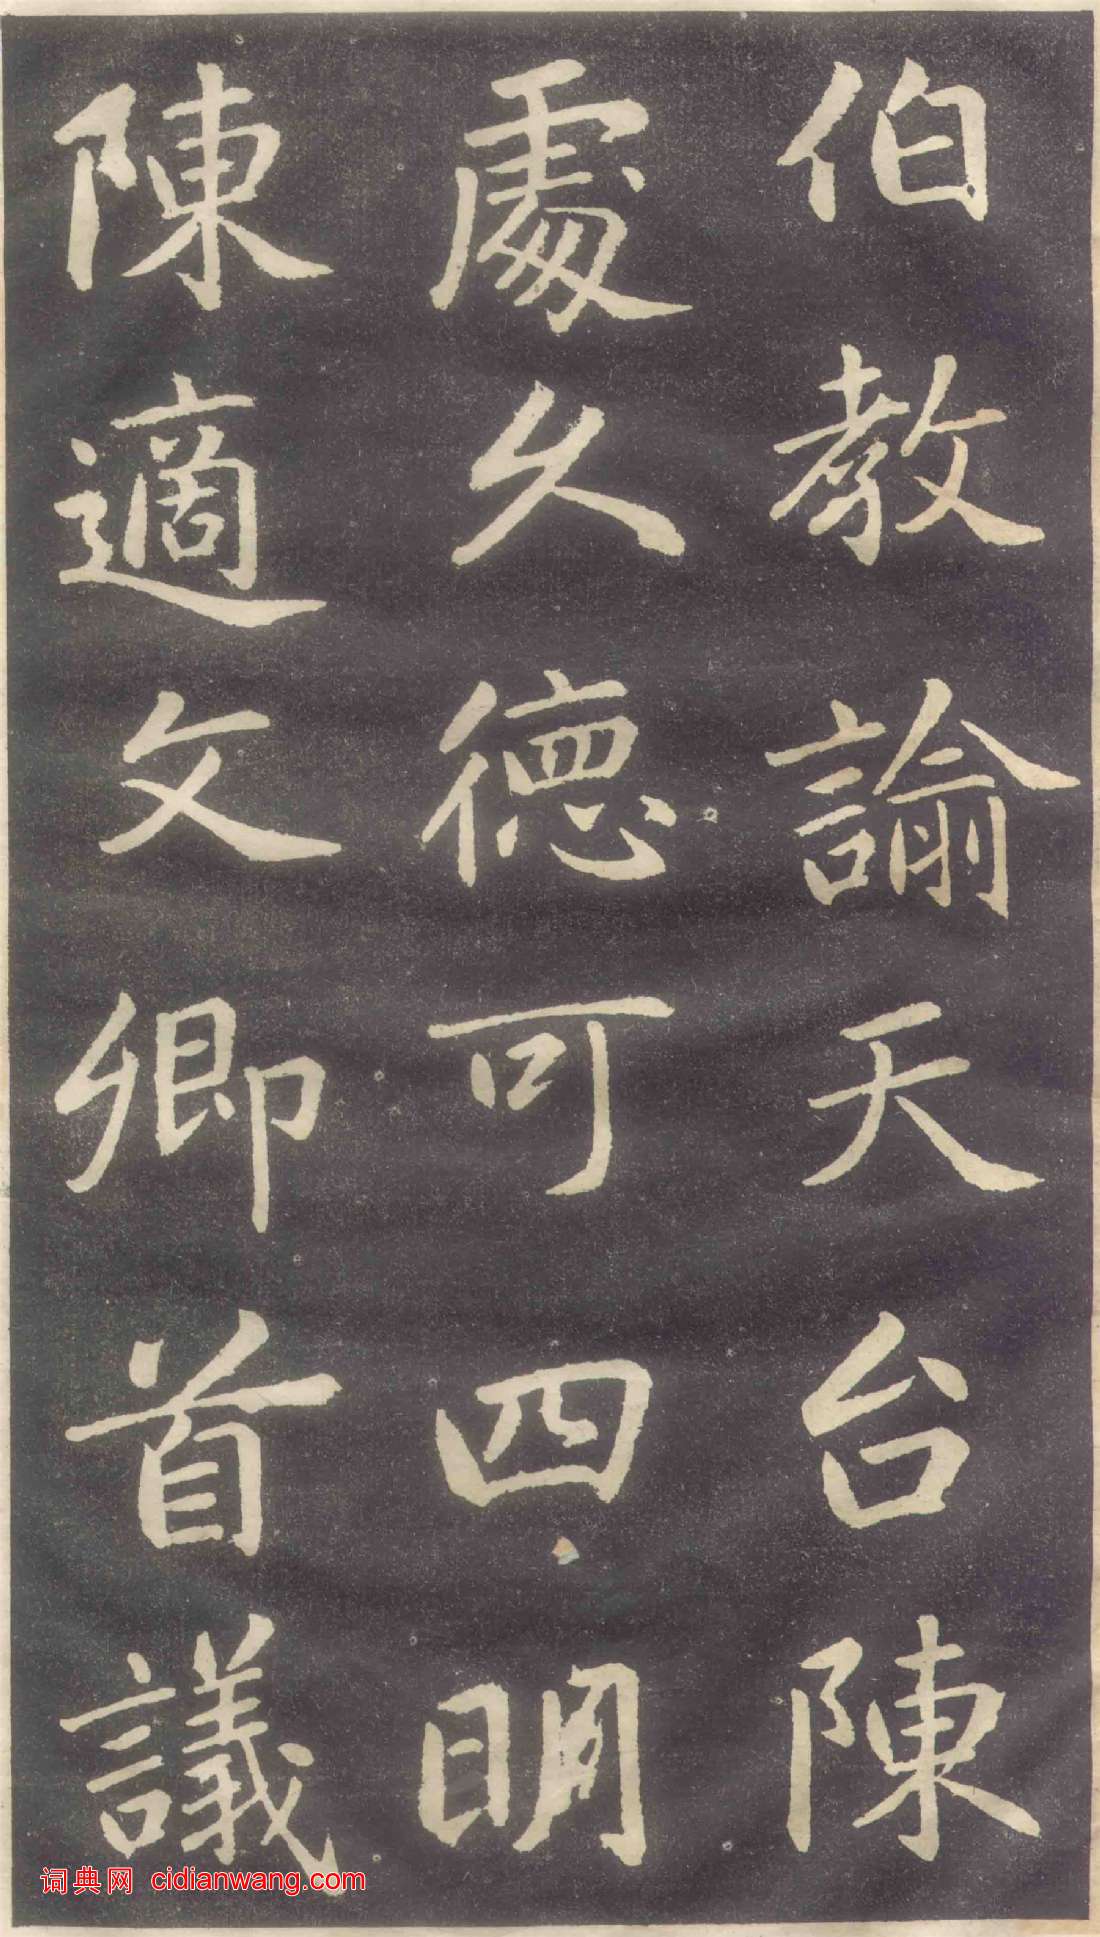 伯教諭天台陳
處久德可四明
陳適文卿首議
词典网 cidianwang.com